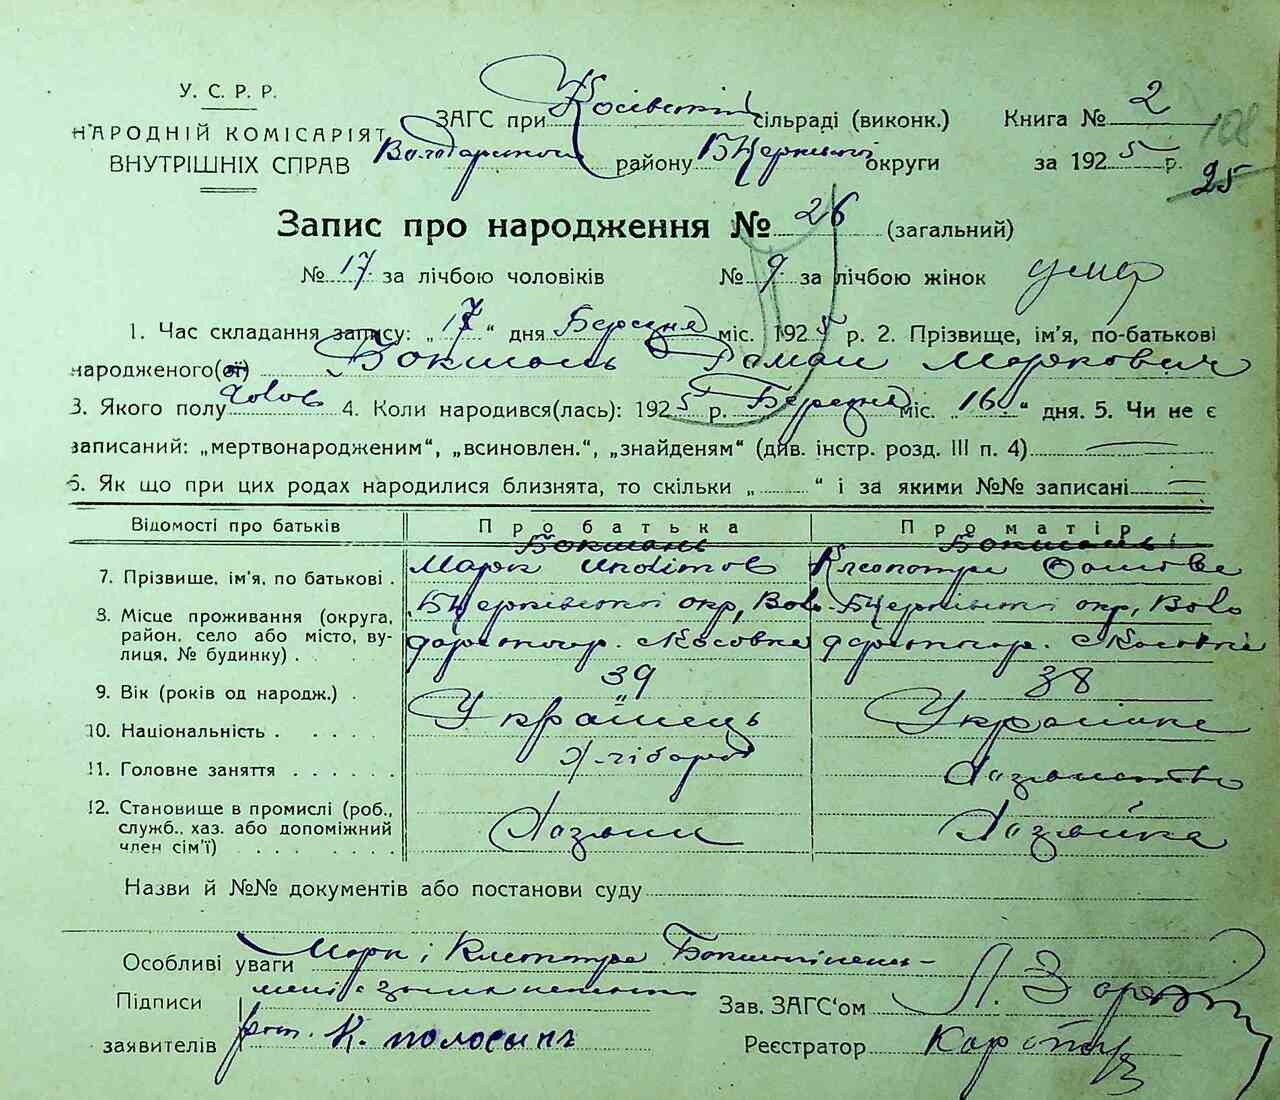 У. С. Р. Р.
НАРОДНІЙ КОМІСАРІЯТ
ВНУТРІШНІХ СПРАВ
ЗАГС при Косівській сільраді (виконк.) Книга № 2
108
Володарського району БЦерківської округи за 1925 р.
25
Запис про народження № 26 (загальний)
№ 17 за лічбою чоловіків № 9 за лічбою жінок умер
1. Час складання запису: „17“ дня Березня міс. 1925 р. 2. Прізвище, ім'я, по-батькові
народженого(ої) Бокшань Роман Маркович
3. Якого полу чолов 4. Коли народився(лась): 1925 р. Березня міс. „16“ дня. 5. Чи не є
записаний: „мертвонародженим“, „всиновлен.“, „знайденям“ (див. інстр. розд. III п. 4)
6. Як що при цих родах народилися близнята, то скільки „ “ і за якими №№ записані
Відомості про батьків Про батька Про матір
Бокшань Бокшань
7. Прізвище, ім'я, по батькові . Марк Клеопатра
8. Місце проживання (округа, БЦерківської окр, Воло- БЦерківської окр, Воло
район, село або місто, ву-
лиця, № будинку) . . . Косовка Косовка
9. Вік (років од народж.) . 39 38
10. Національність . . . . . Українець Українка
11. Головне заняття . . . . . . Хлібороб Хазяйство
12. Становище в промислі (роб.,
служб., хаз. або допоміжний Хазяин Хазяйка
член сім'ї) . . . . . . .
Назви й №№ документів або постанови суду
Особливі уваги Марк і Клеопатра
Підписи Зав. ЗАГС'ом
заявителів К. полосынъ Реєстратор